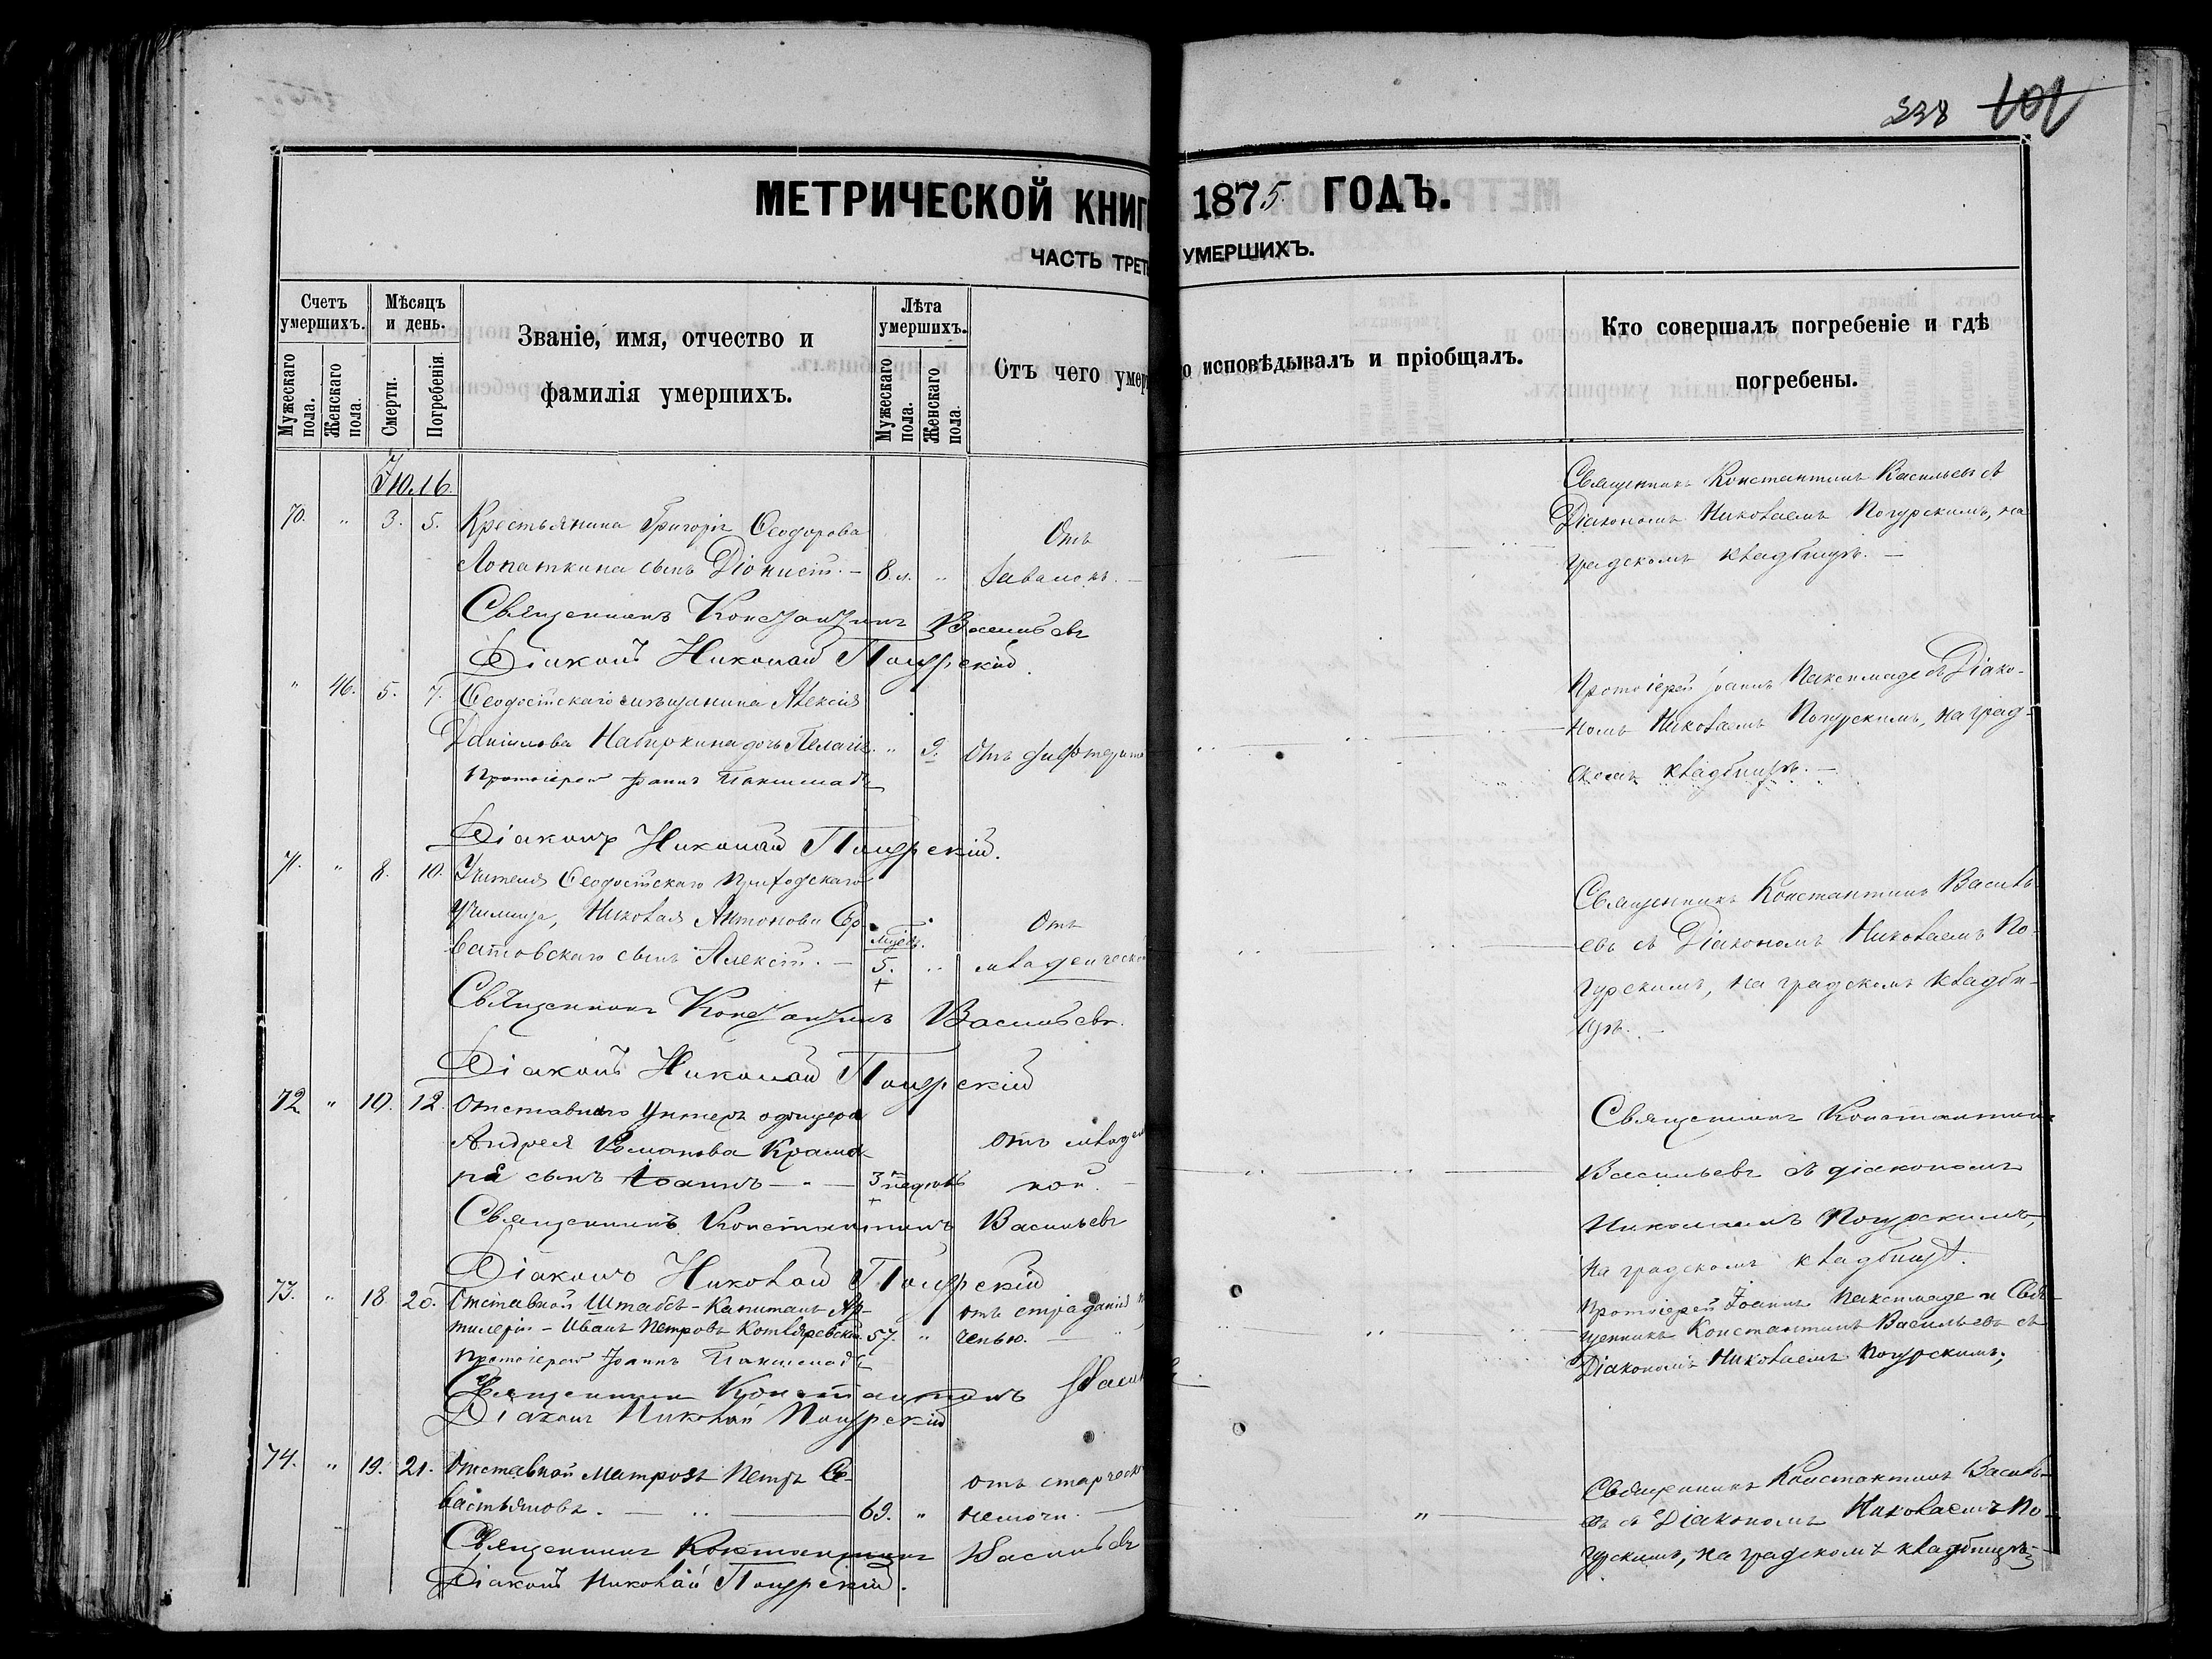 238 101
МЕТРИЧЕСКОЙ КНИГ 1875 ГОДЪ.
ЧАСТЬ ТРЕТ УМЕРШИХЪ.
Счетъ умершихъ.
Мужескаго пола.
Женскаго пола.
Мѣсяцъ и день.
Смерти.
Погребенія.
Званіе, имя, отчество и
фамилія умершихъ.
Лѣта умершихъ.
Мужескаго пола.
Женскаго пола.
Отъ чего умер
о исповѣдывалъ и пріобщалъ.
Кто совершалъ погребеніе и гдѣ
погребены.
Іюль
70. " 3. 5. Крестьянина Григорія Ѳеодорова Отъ
Лопаткина сынъ Діонисій. — 8. м. "
Священникъ Константинъ Васильевъ
Діаконъ Николай Погурскій.
Священникъ Константинъ Васильевъ съ
Діакономъ Николаемъ Погурскимъ, на
градскомъ кладбищѣ. —
" 46. 5. 7. Ѳеодосійскаго мѣщанина Алексія
Даніилова дочь Пелагія. " 9. Отъ
Протоіерей Іоаннъ Паксимаде
Діаконъ Николай Погурскій.
Протоіерей Іоаннъ Паксимаде съ Діако-
номъ Николаемъ Погурскимъ, на град-
скомъ кладбищѣ. —
71. " 8. 10. Учителя Ѳеодосійскаго Приходскаго
училища, Николая Антонова Отъ
сынъ Алексій. — 5. " младенческ
Священникъ Константинъ Васильевъ.
Діаконъ Николай Погурскій
Священникъ Константинъ Василь-
евъ съ Діакономъ Николаемъ По-
гурскимъ, на градскомъ кладби-
щѣ. —
72 " 10. 12. Отставного Унтеръ офицера
Андрея Романова Крама- отъ младен
ра сынъ Іоаннъ — 3 недѣль кой. —
Священникъ Константинъ Васильевъ
Діаконъ Николай Погурскій
Священникъ Константинъ
Васильевъ съ діакономъ
Николаемъ Погурскимъ,
на градскомъ кладбищѣ.
73. " 18 20. Отставной Штабсъ-Капитанъ Ар- отъ страданія
тилеріи — Иванъ Петровъ Котляревскій. 57. " ченью. —
Протоіерей Іоаннъ Паксимаде
Священникъ Константинъ
Діаконъ Николай Погурскій
Протоіерей Іоаннъ Паксимаде и Свя-
щенникъ Константинъ Васильевъ съ
Діакономъ Николаемъ Погурскимъ,
74. " 19. 21. Отставной Матрозъ Петръ Се- отъ старческ
вастьяновъ. — 69. " немочи. —
Священникъ Константинъ Васильевъ
Діаконъ Николай Погурскій.
Священникъ Константинъ Василь-
евъ съ Діакономъ Николаемъ По-
гурскимъ, на градскомъ кладбищѣ